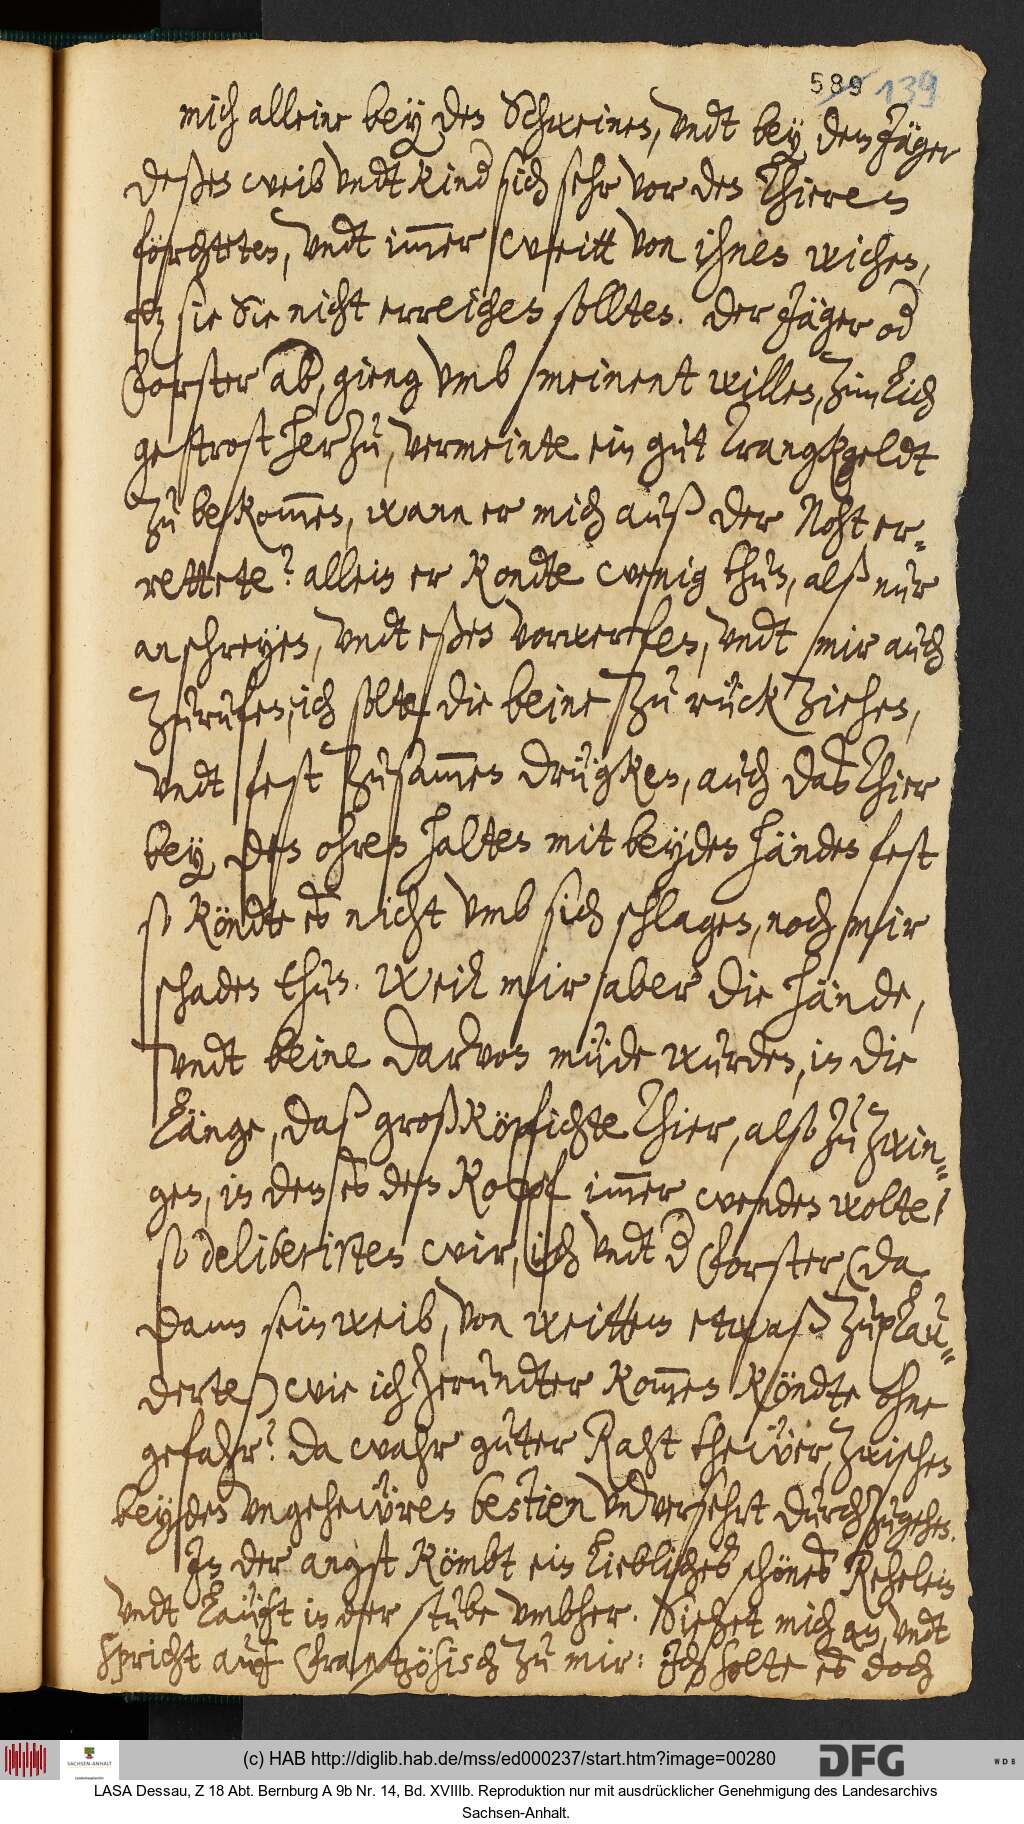 589 139
mich alleine bey den Schweinen, vndt bey dem Jäger
deßen weib vndt kind sich sehr vor den Thieren
förchteten, vndt im̄er weitt von ihnen wichen,
dz sie Sie nicht erreichen sollten. Der Jäger od
Forster ab, gieng vmb meinent willen, zimlich
getrost herzu, vermeinte ein gut Trangkgeldt
zu bekom̄en, wann er mich auß der Noht er-
rettete? allein er kondte wenig thun, alß nur
anschreyen, vndt eßen vorwerfen, vndt mir auch
zurufen, ich solte die beine zu rück ziehen,
vndt fest zusam̄en drügken, auch das Thier
bey den ohren halten mit beyden händen fest
so köndte es nicht vmb sich schlagen, noch mir
schaden thun. Weil mir aber die hände,
vndt beine darvon müde wurden, in die
Länge, daß großköpfichte Thier, also zu zwin-
gen, in dem es den Kopf im̄er wenden wolte,
so deliberirten wir, ich vndt d Forster, (da
dann sein weib, von weittem etwaß zuplau-
derte) wie ich herundter kom̄en köndte ohne
gefahr? da wahr guter Raht thewer, zwischen
beyden vngehewren bestien vnversehrt durchzugehen.
In der angst kömbt ein liebliches schönes Rehelein
vndt läuft in der stube vmbher. Siehet mich an, vndt
spricht auf Frantzösisch zu mir: Ich solte es doch
(c) HAB http://diglib.hab.de/mss/ed000237/start.htm?image=00280
SACHSEN-ANHALT
DFG
WDB
LASA Dessau, Z 18 Abt. Bernburg A 9b Nr. 14, Bd. XVIIIb. Reproduktion nur mit ausdrücklicher Genehmigung des Landesarchivs
Sachsen-Anhalt.